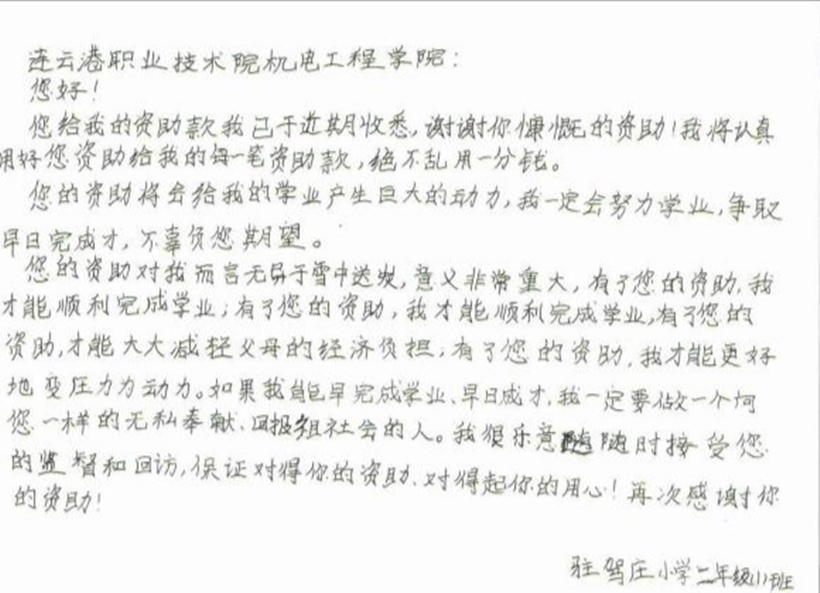 连云港职业技术院机电工程学院：
您好！
您给我的资助款我已于近期收悉，谢谢你慷慨的资助！我将认真
用好您资助给我的每一笔资助款，绝不乱用一分钱。
您的资助将会给我的学业产生巨大的动力，我一定会努力学业，争取
早日完成才，不辜负您期望。
您的资助对我而言无异于雪中送炭，意义非常重大，有了您的资助，我
才能顺利完成学业；有了您的资助，我才能顺利完成学业，有了您的
资助，才能大大减轻父母的经济负担；有了您的资助，我才能更好
地变压力力动力。如果我能早完成学业、早日成才，我一定要做一个向
您一样的无私奉献、回报祖社会的人。我很乐意随时接受您
的监督和回访，保证对得你的资助、对得起你的用心！再次感谢你
的资助！
驻驾庄小学二年级(1)班